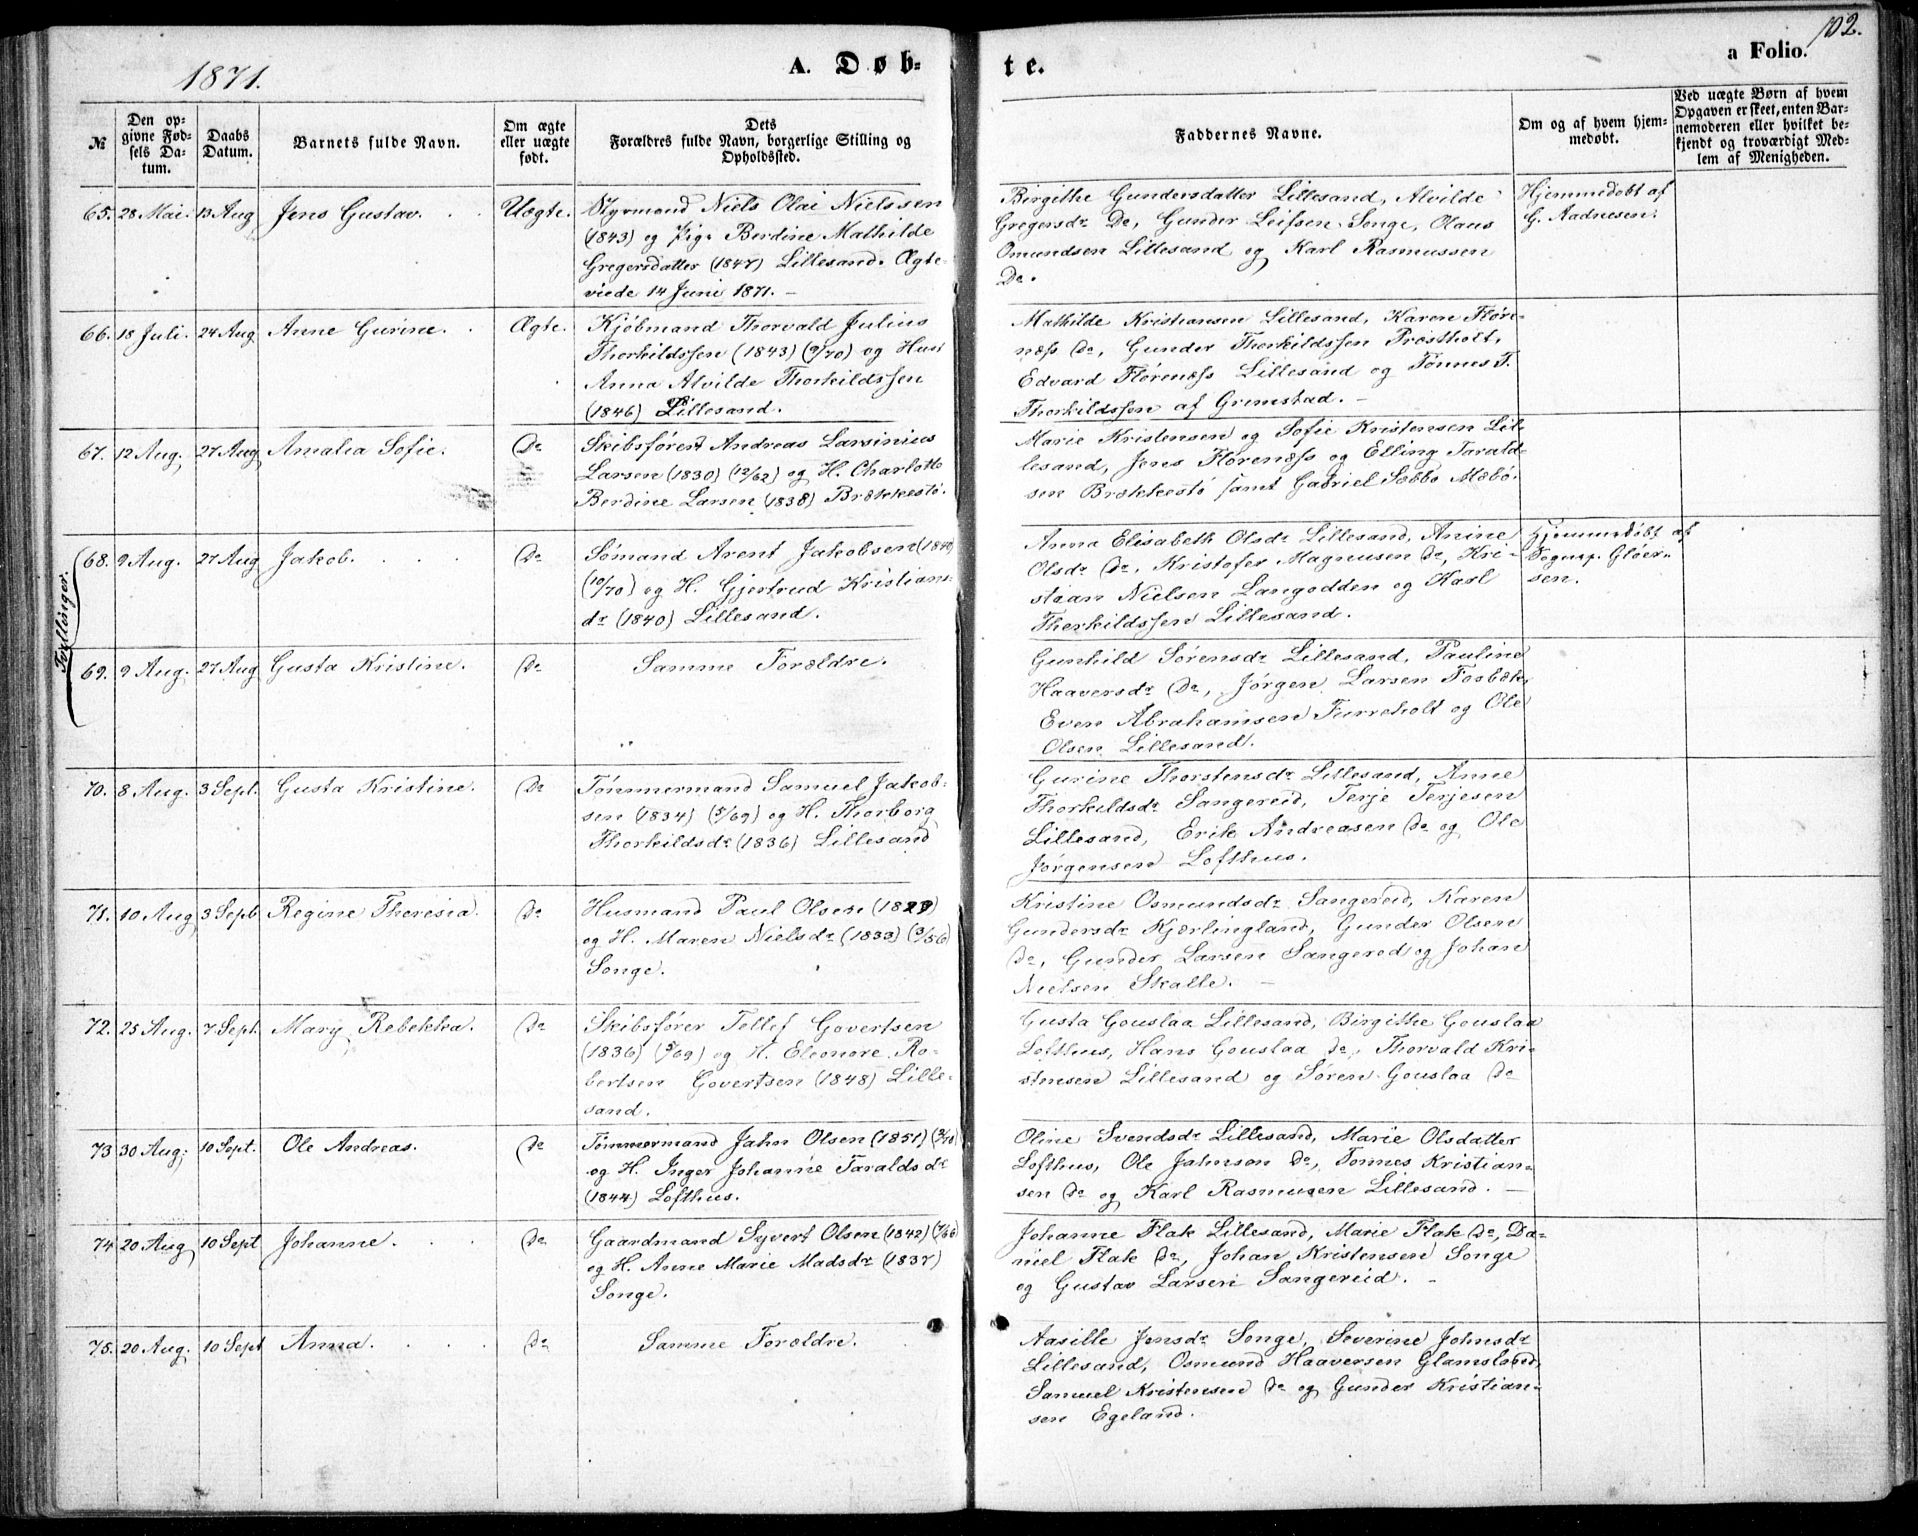 1871.
A. Døb-
te.
a Folio. 102.
№
Den op-
givne Fød-
sels Da-
tum.
Daabs
Datum.
Barnets fulde Navn.
Om ægte
eller uægte
født.
Dets
Forældres fulde Navn, borgerlige Stilling og
Opholdssted.
Faddernes Navne.
Om og af hvem hjem-
medøbt.
Ved uægte Børn af hvem
Opgaven er skeet, enten Bar-
nemoderen eller hvilket be-
kjendt og troværdigt Med-
lem af Menigheden.
65. 28 Mai. 13 Aug Jens Gustav. Uægte.
Styrmand Niels Olai Nielssen
(1843) og Pige Berdine Mathilde
Gregersdatter (1847) Lillesand. Ægte-
viede 14 Juni 1871. –
Birgithe Gundersdatter Lillesand, Alvilde
Gregersdr Do, Gunder Leifsen Songe, Olaus
Omundsen Lillesand og Karl Rasmussen
Do.
Hjemmedøbt af
G. Aadnesen.
66. 18 Juli. 24 Aug Anne Gurine. Ægte.
Kjøbmand Thorvald Julius
Thorkildssen (1843) (9/70) og Hust
Anna Alvilde Thorkildssen
(1846) Lillesand.
Mathilde Kristiansen Lillesand, Karen Fløre-
næss Do, Gunder Thorkildssen Prestholt,
Edvard Flørenæss Lillesand og Tønnes T.
Thorkildssen af Grimstad. –
67. 12 Aug. 27 Aug Amalia Sofie. Do
Skibsfører Andreas Lavinius
Larsen (1830) (12/62) og H. Charlotte
Berdine Larsen (1838) Brækkestø.
Marie Kristensen og Sofie Kristensen Lil-
lesand, Jens Flørenæss og Elling Tarald-
sen Brækkestø samt Gabriel Sæbbø Mæbø.
Tvillinger.
68. 9 Aug. 27 Aug Jakob. Do
Sømand Arent Jakobsen (1840)
(10/70) og H. Gjertrud Kristians-
dr (1840) Lillesand.
Anna Elisabeth Olsdr Lillesand, Anine
Olsdr Do, Kristofer Magnusen Do, Kri-
staan Nielsen Langodden og Karl
Thorkildssen Lillesand.
Hjemmedøbt af
Sognep. Gløer-
sen.
69. 9 Aug. 27 Aug Gusta Kristine. Do
Samme Forældre.
Gunhild Sørensdr Lillesand, Pauline
Haaversdr Do, Jørgen Larsen Fosbæk,
Even Abrahamsen Furreholt og Ole
Olsen Lillesand.
70. 8 Aug. 3 Sept. Gusta Kristine. Do
Tømmermand Samuel Jakob-
sen (1834) (5/69) og H. Thorborg
Thorkildsdr (1836) Lillesand
Gurine Thorstensdr Lillesand, Anne
Thorkildsdr Sangereid, Terje Terjesen
Lillesand, Erik Andreasen Do og Ole
Jørgensen Lofthus.
71. 10 Aug 3 Sept Regine Theresia. Do
Husmand Paul Olsen
og H. Maren Nielsdr (1833) (3/56)
Songe.
Kristine Osmundsdr Sangereid, Karen
Gundersdr Kjærlingland, Gunder Olsen
Do, Gunder Larsen Sangereid og Johan
Nielsen Skalle. –
72. 25 Aug. 7 Sept. Mary Rebekka. Do
Skibsfører Tellef Govertsen
(1836) (5/69) og H. Eleonore Ro-
bertsen Govertsen (1848) Lille-
sand.
Gusta Gouslaa Lillesand, Birgithe Gouslaa
Lofthus, Hans Gouslaa Do, Thorvald Kri-
stensen Lillesand og Søren Gouslaa Do
73 30 Aug. 10 Sept. Ole Andreas. Do
Tømmermand Jahn Olsen (1851) (3/70)
og H. Inger Johanne Taraldsdr
(1844) Lofthus.
Oline Svendsdr Lillesand, Marie Olsdatter
Lofthus, Ole Jahnson Do, Tønnes Kristian-
sen Do og Karl Rasmusen Lillesand. –
74 20 Aug 10 Sept Johanne. Do
Gaardmand Syvert Olsen (1842) (7/66)
og H. Anne Marie Madsdr (1837)
Songe.
Johanne Flak Lillesand, Marie Flak Do, Da-
niel Flak Do, Johan Kristensen Songe
og Gustav Larsen Sangereid. –
75. 20 Aug. 10 Sept Anna. Do
Samme Forældre.
Aasille Jensdr Songe, Severine Johnsdr
Lillesand, Osmund Haaversen Glamsland,
Samuel Kristensen Do og Gunder Kristian-
sen Egeland.